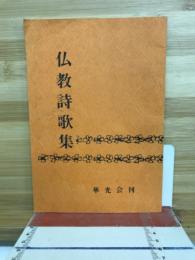 仏教詩歌集
華光会刊